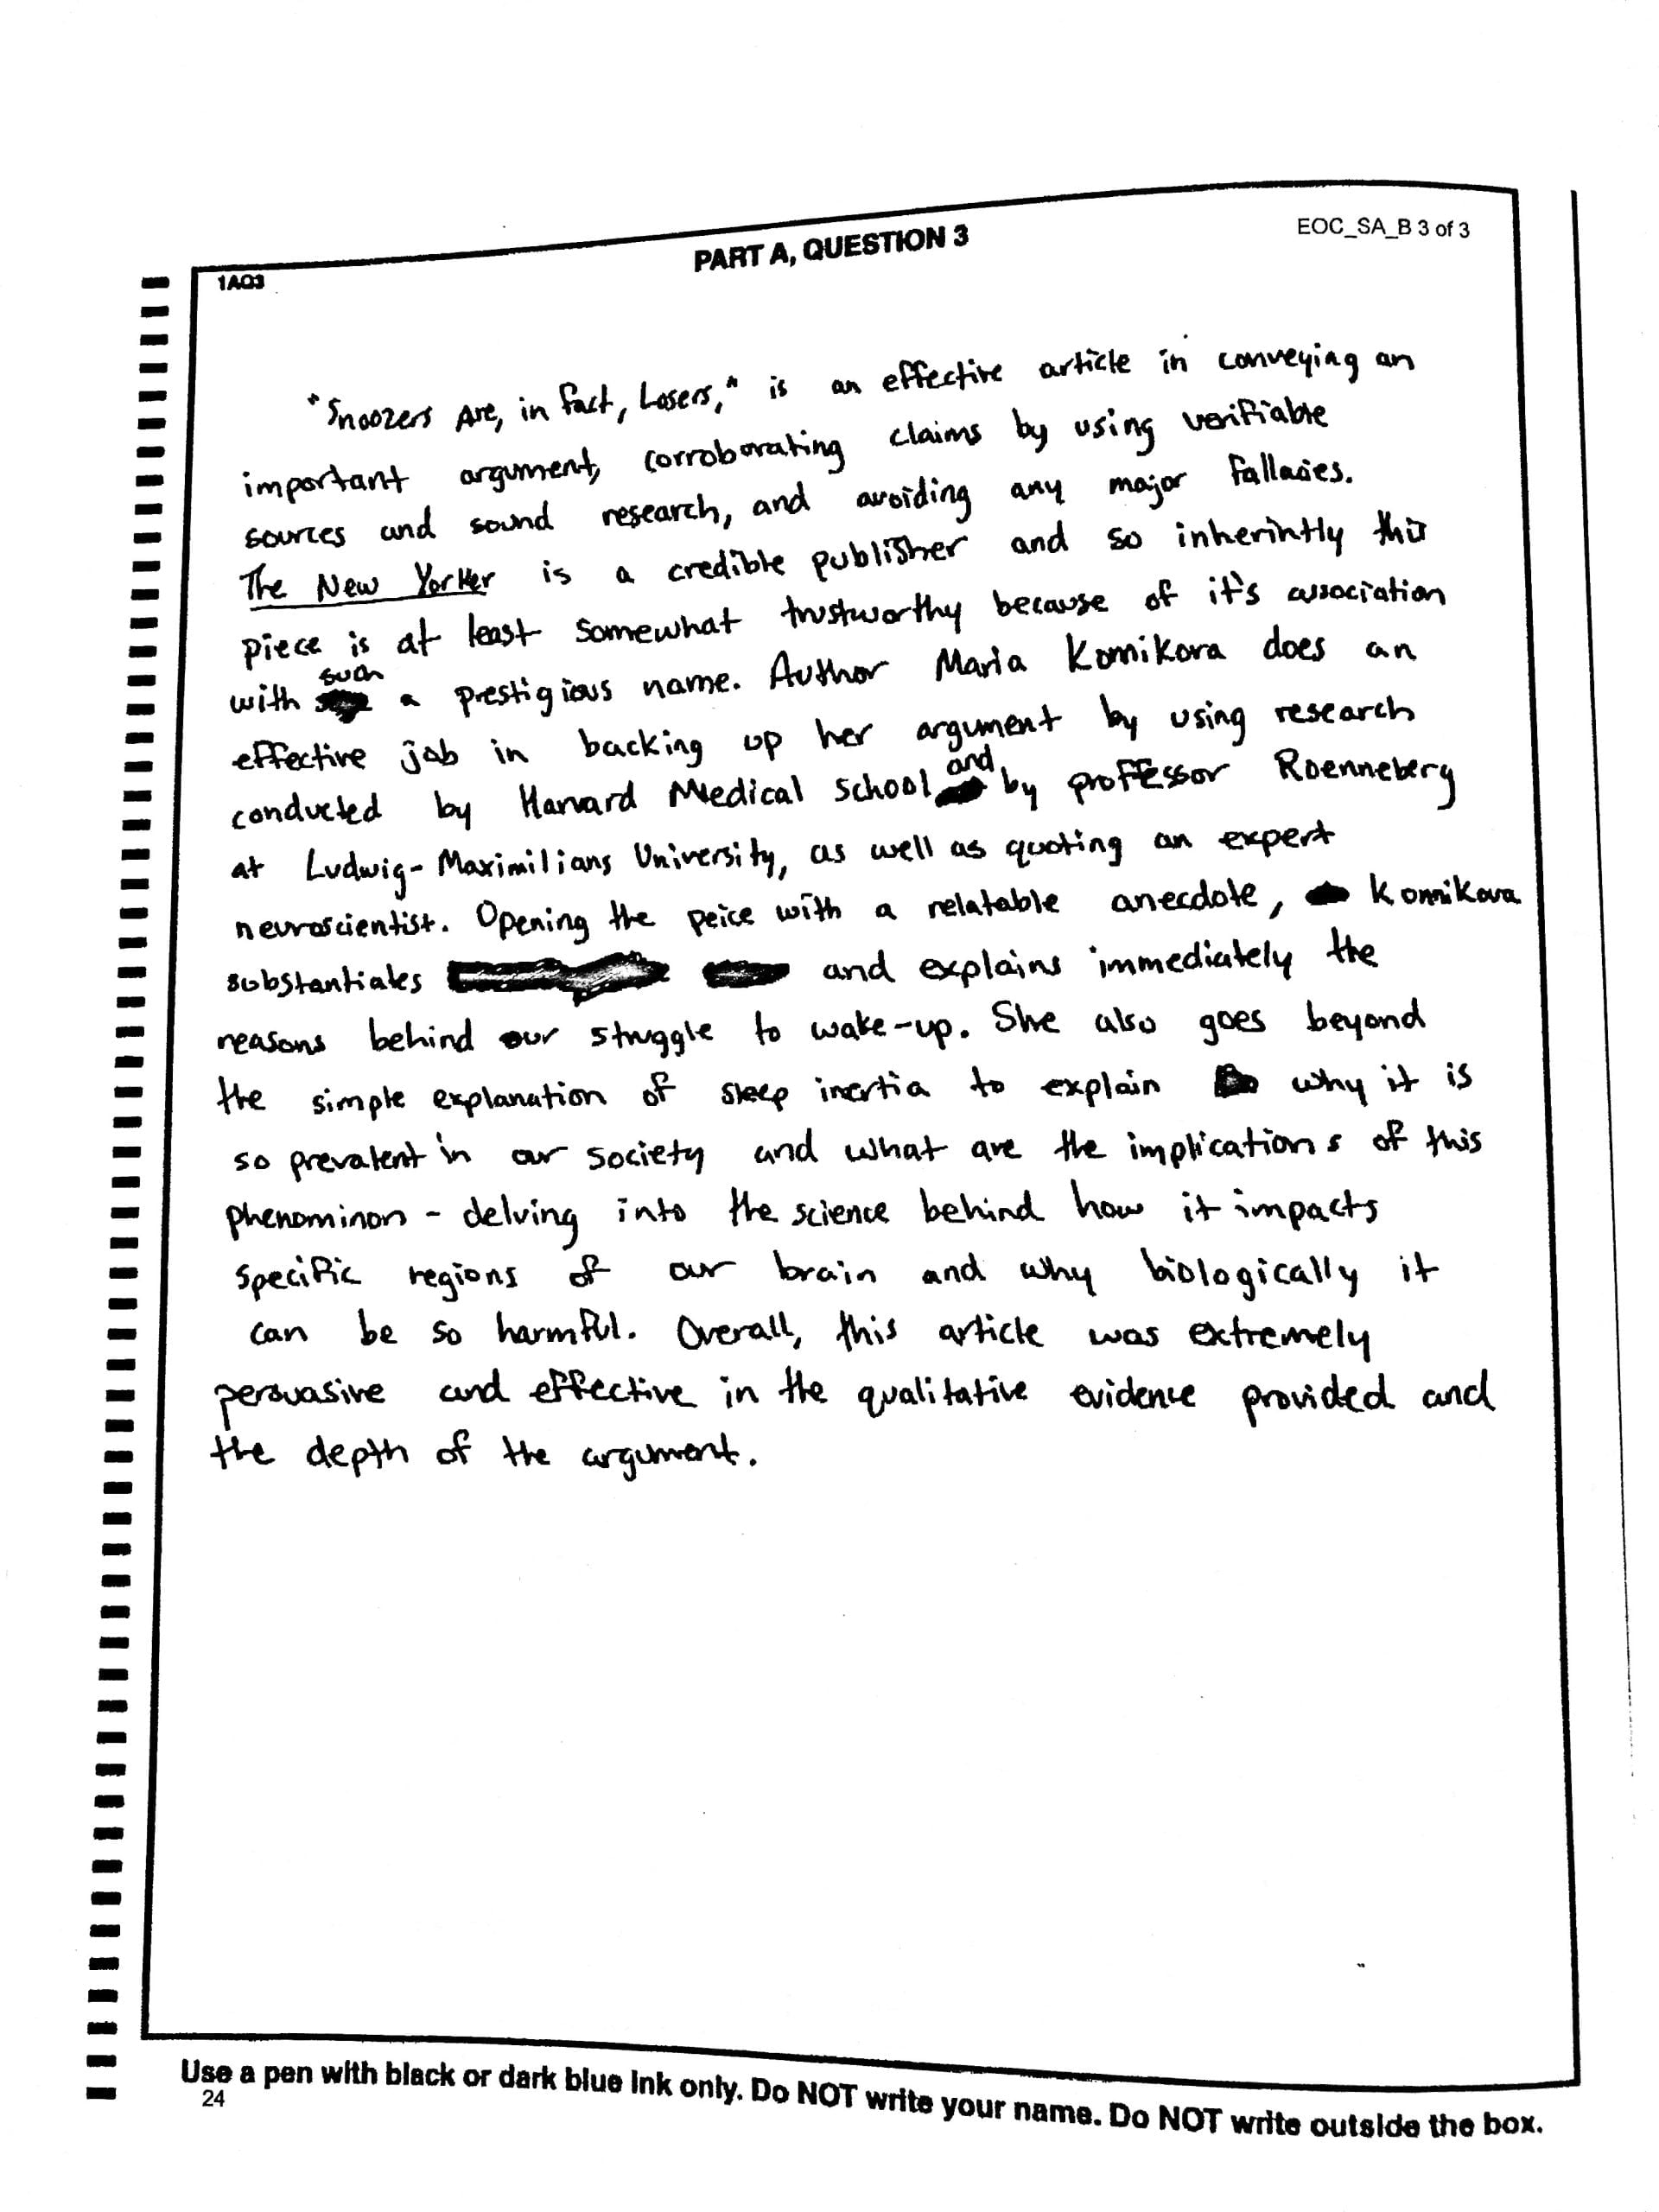 PART A, QUESTION 3
EOC_SA_B 3 of 3
1AQ3
"Snoozers Are, in fact, Losers," is an effective article in conveying an
important argument, corroborating claims by using verifiable
sources and sound research, and avoiding any major fallacies.
The New Yorker is a credible publisher and so inherintly this
piece is at least somewhat trustworthy because of it's association
with such a prestigious name. Author Maria Konnikova does an
effective job in backing up her argument by using research
conducted by Harvard Medical School and by professor Roenneberg
at Ludwig-Maximilians University, as well as quoting an expert
neuroscientist. Opening the peice with a relatable anecdote, Konnikova
substantiates and explains immediately the
reasons behind our struggle to wake-up. She also goes beyond
the simple explanation of sleep inertia to explain why it is
so prevalent in our society and what are the implications of this
phenominon - delving into the science behind how it impacts
specific regions of our brain and why biologically it
can be so harmful. Overall, this article was extremely
persuasive and effective in the qualitative evidence provided and
the depth of the argument.
Use a pen with black or dark blue ink only. Do NOT write your name. Do NOT write outside the box.
24